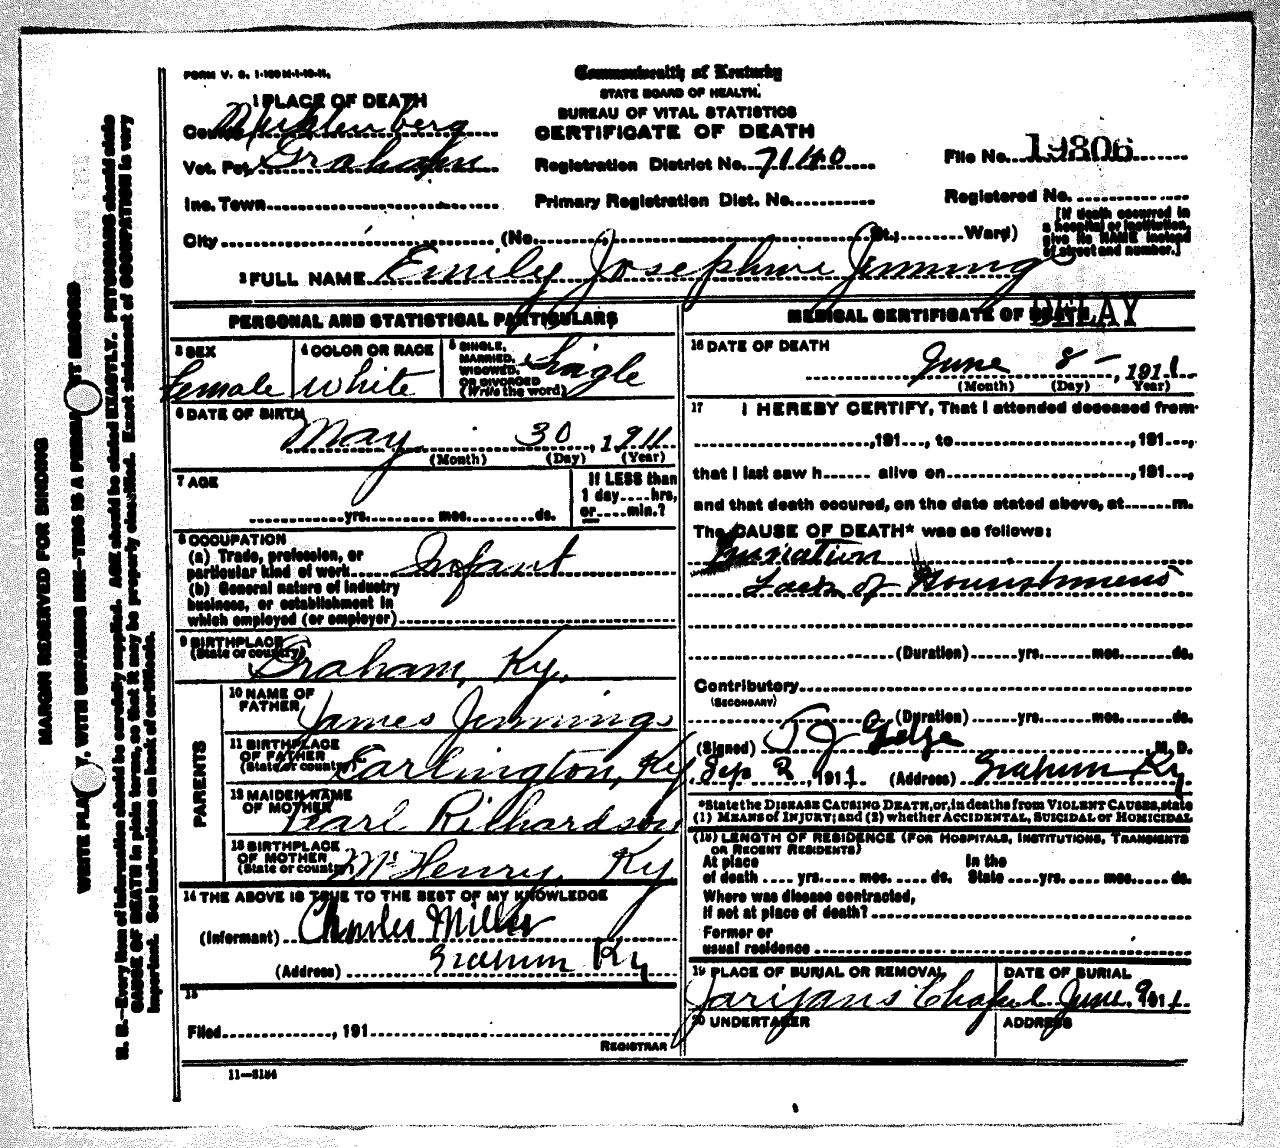 FORM V. S. 1-100 M-1-10-11.
Commonwealth of Kentucky
STATE BOARD OF HEALTH.
BUREAU OF VITAL STATISTICS
CERTIFICATE OF DEATH
1 PLACE OF DEATH
County Muhlenberg
Vot. Pct. Graham
Registration District No. 7140
File No. 19806
Inc. Town
Primary Registration Dist. No.
Registered No.
City (No. St.; Ward)
[If death occurred in
a hospital or institution,
give its NAME instead
of street and number.]
2 FULL NAME Emily Josephine Jennings
PERSONAL AND STATISTICAL PARTICULARS
3 SEX
Female
4 COLOR OR RACE
White
5 SINGLE,
MARRIED,
WIDOWED,
OR DIVORCED
(Write the word)
Single
6 DATE OF BIRTH
May 30, 1911
(Month) (Day) (Year)
7 AGE
yrs. mos. ds.
If LESS than
1 day....hrs,
or....min.?
8 OCCUPATION
(a) Trade, profession, or
particular kind of work Infant
(b) General nature of industry
business, or establishment in
which employed (or employer)
9 BIRTHPLACE
(State or country)
Graham, Ky.
PARENTS
10 NAME OF
FATHER
James Jennings
11 BIRTHPLACE
OF FATHER
(State or country)
Earlington, Ky.
12 MAIDEN NAME
OF MOTHER
Pearl Richardson
13 BIRTHPLACE
OF MOTHER
(State or country)
McHenry, Ky
14 THE ABOVE IS TRUE TO THE BEST OF MY KNOWLEDGE
(Informant) Charles Miller
(Address) Graham Ky
15
Filed, 191
REGISTRAR
11—3184
MEDICAL CERTIFICATE OF DEATH
DELAY
16 DATE OF DEATH
June 8 – , 1911
(Month) (Day) Year)
17 I HEREBY CERTIFY, That I attended deceased from
, 191..., to , 191...,
that I last saw h alive on , 191...,
and that death occured, on the date stated above, at m.
The CAUSE OF DEATH* was as follows:
Lack of Nourishment
(Duration) yrs. mos. ds.
Contributory
(SECONDARY)
(Duration) yrs. mos. ds.
(Signed) T J M. D.
Sep 2, 1911 (Address) Graham Ky
*State the DISEASE CAUSING DEATH, or, in deaths from VIOLENT CAUSES, state
(1) MEANS OF INJURY; and (2) whether ACCIDENTAL, SUICIDAL or HOMICIDAL
(18) LENGTH OF RESIDENCE (FOR HOSPITALS, INSTITUTIONS, TRANSIENTS
OR RECENT RESIDENTS)
At place
of death .... yrs. mos. ds.
In the
State .... yrs. mos. ds.
Where was disease contracted,
if not at place of death?
Former or
usual residence
19 PLACE OF BURIAL OR REMOVAL
Chapel
DATE OF BURIAL
June 9 1911
20 UNDERTAKER
ADDRESS
MARGIN RESERVED FOR BINDING
WRITE PLAINLY, WITH UNFADING INK—THIS IS A PERMANENT RECORD
N. B.—Every item of information should be carefully supplied. AGE should be stated EXACTLY. PHYSICIANS should state
CAUSE OF DEATH in plain terms, so that it may be properly classified. Exact statement of OCCUPATION is very
important. See instructions on back of certificate.